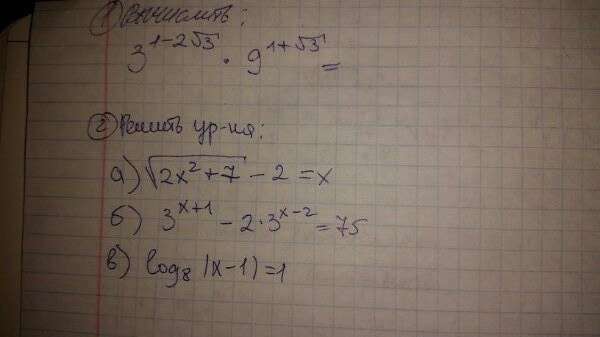 1) Вычислить:
3^{1-2√3} · 9^{1+√3} =
2) Решить ур-ия:
а) √(2x²+7) - 2 = x
б) 3^{x+1} - 2·3^{x-2} = 75
в) log₈(x-1)=1